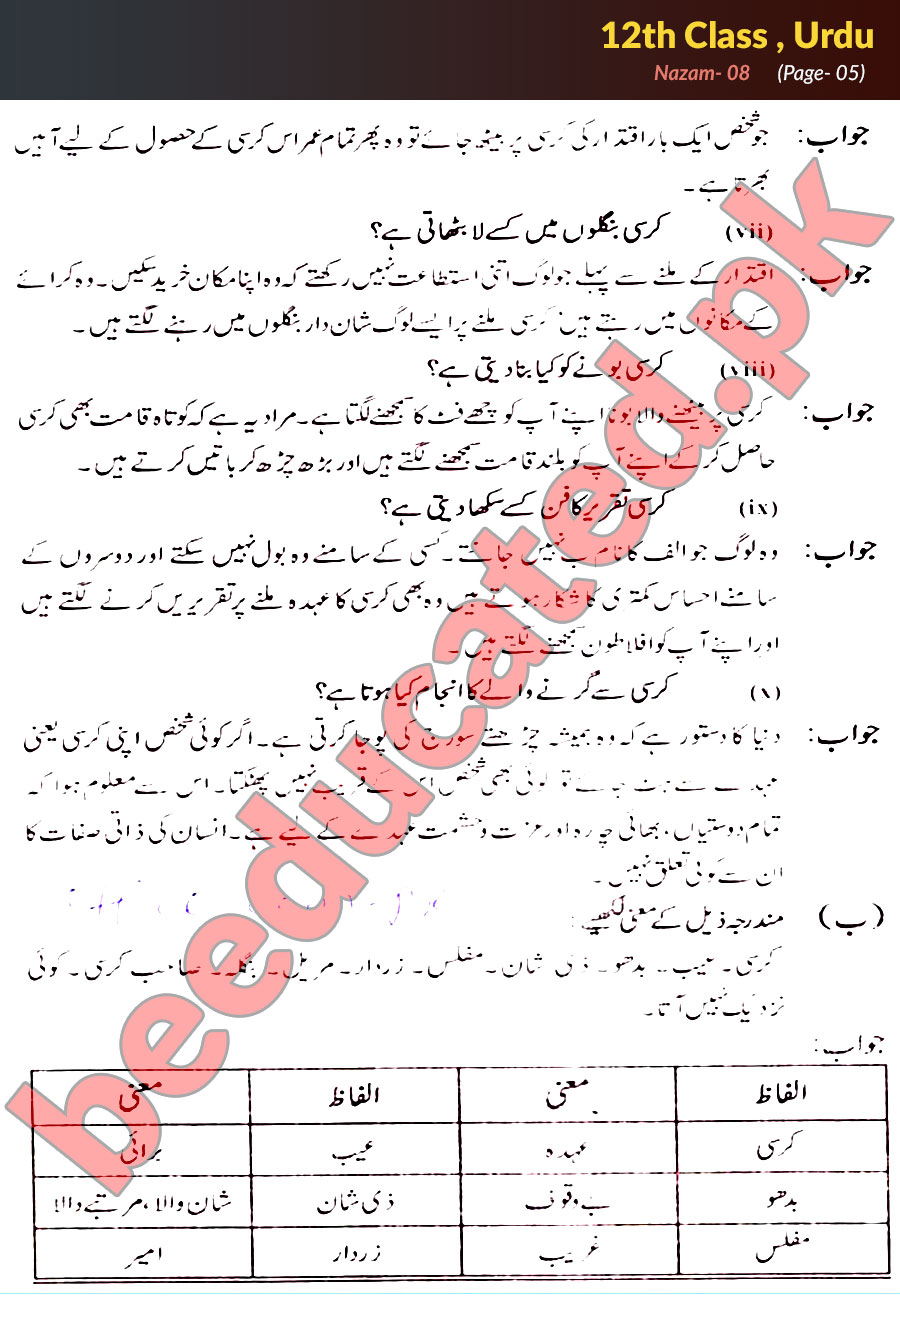 12th Class , Urdu
Nazam- 08 (Page- 05)
جواب: جو شخص ایک بار اقتدار کی کرسی پر بیٹھ جائے تو وہ پھر تمام عمر اس کرسی کے حصول کے لیے آہیں
بھرتا ہے۔
(vii) کرسی بنگلوں میں کسے لا بٹھاتی ہے؟
جواب: اقتدار کے ملنے سے پہلے جو لوگ اتنی استطاعت نہیں رکھتے کہ وہ اپنا مکان خرید سکیں۔ وہ کرائے
کے مکانوں میں رہتے ہیں' کرسی ملنے پر ایسے لوگ شان دار بنگلوں میں رہنے لگتے ہیں۔
(viii) کرسی بونے کو کیا بنا دیتی ہے؟
جواب: کرسی پر بیٹھنے والا بونا اپنے آپ کو چھے فٹ کا سمجھنے لگتا ہے۔ مراد یہ ہے کہ کوتاہ قامت بھی کرسی
حاصل کر کے اپنے آپ کو بلند قامت سمجھنے لگتے ہیں اور بڑھ چڑھ کر باتیں کرتے ہیں۔
(ix) کرسی تقریر کا فن کسے سکھا دیتی ہے؟
جواب: وہ لوگ جو الف کا نام ب نہیں جانتے۔ کسی کے سامنے وہ بول نہیں سکتے اور دوسروں کے
سامنے احساس کمتری کا شکار ہوتے ہیں وہ بھی کرسی کا عہدہ ملنے پر تقریریں کرنے لگتے ہیں
اور اپنے آپ کو افلاطون سمجھنے لگتے ہیں۔
(x) کرسی سے گرنے والے کا انجام کیا ہوتا ہے؟
جواب: دنیا کا دستور ہے کہ وہ ہمیشہ چڑھتے سورج کی پوجا کرتی ہے۔ اگر کوئی شخص اپنی کرسی یعنی
عہدے سے ہٹ جائے تو کوئی بھی شخص اس کے قریب نہیں پھٹکتا۔ اس سے معلوم ہوا کہ
تمام دوستیاں، بھائی چارہ اور عزت و حشمت عہدے کے لیے ہے۔ انسان کی ذاتی صفات کا
ان سے کوئی تعلق نہیں۔
(ب) مندرجہ ذیل کے معنی لکھیے:
کرسی۔ عیب۔ بدھو۔ ذی شان۔ مفلس۔ زردار۔ مریل۔ بنگلہ۔ صاحب کرسی۔ کوئی
نزدیک نہیں آتا۔
جواب:
الفاظ معنی الفاظ معنی
کرسی عہدہ عیب برائی
بدھو بے وقوف ذی شان شان والا، مرتبے والا
مفلس غریب زردار امیر
beeducated.pk